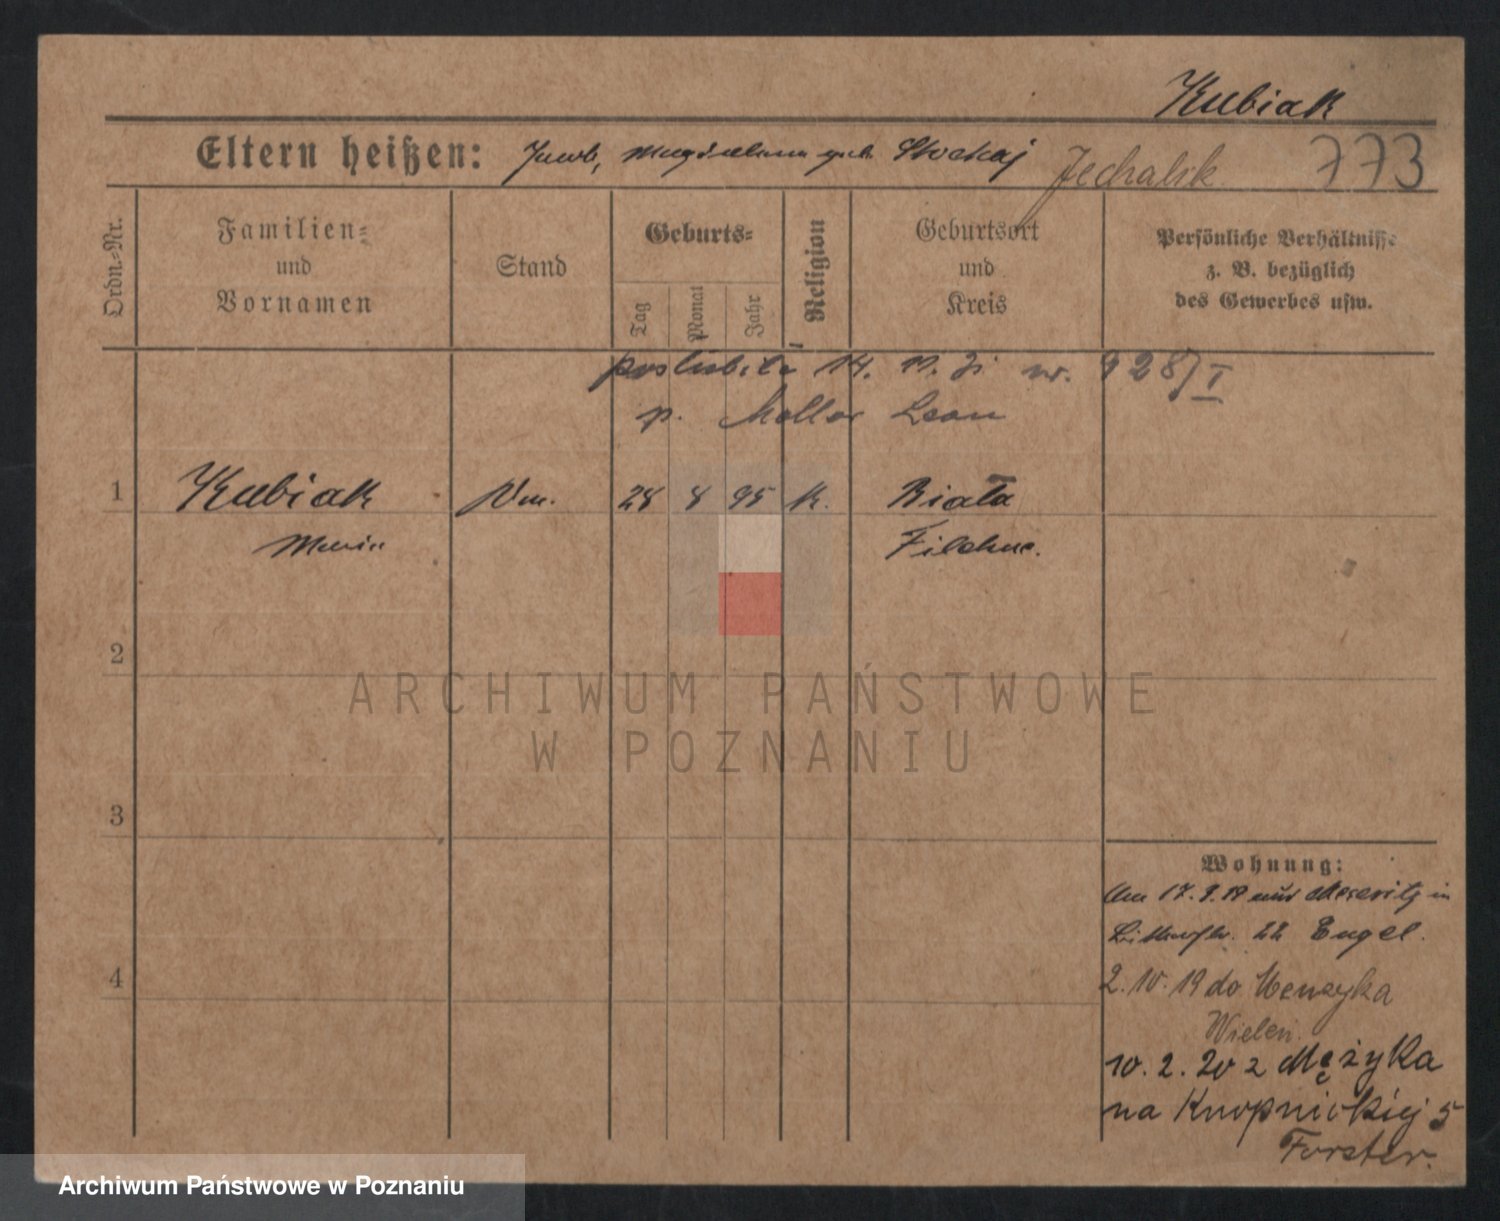 Kubiak
Eltern heißen: Jacob, Magdalena geb. Stochaj
Jechalik
773
Ordn.-Nr.
Familien=
und
Vornamen
Stand
Geburts=
Tag
Monat
Jahr
Religion
Geburtsort
und
Kreis
Persönliche Verhältnisse
z. B. bezüglich
des Gewerbes usw.
poślubiła 14. 11. 21 nr. 928/I
p. Leon
1 Kubiak 28 8 95 K. Biała
Maria Filehne.
2
3
4
Wohnung:
Am 17. 9. 19 aus Meseritz in
22 Engel.
2. 10. 19 do
Wieleń.
10. 2. 20 z Mężyka
na 5
Forster.
ARCHIWUM PAŃSTWOWE
W POZNANIU
Archiwum Państwowe w Poznaniu